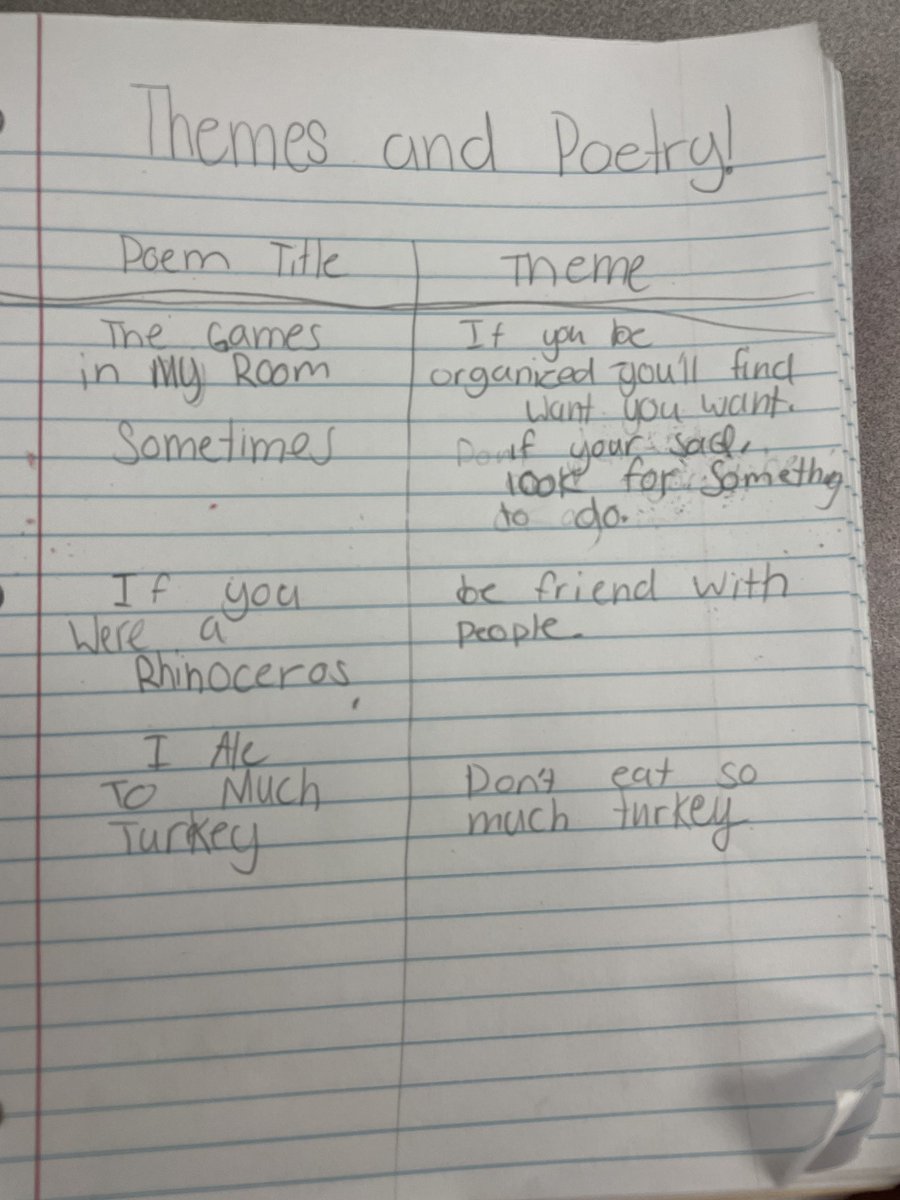 Themes and Poetry!
Poem Title Theme
The Games If you be
in My Room organized you'll find
want you want.
Sometimes if your sad,
look for somethg
to do.
If you be friend with
Were a people.
Rhinoceros
I Ate
To Much Don't eat so
Turkey much turkey